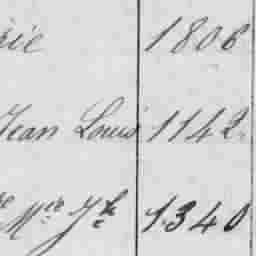 rie 1806
Jean Louis 1142
Mie Jh 1340